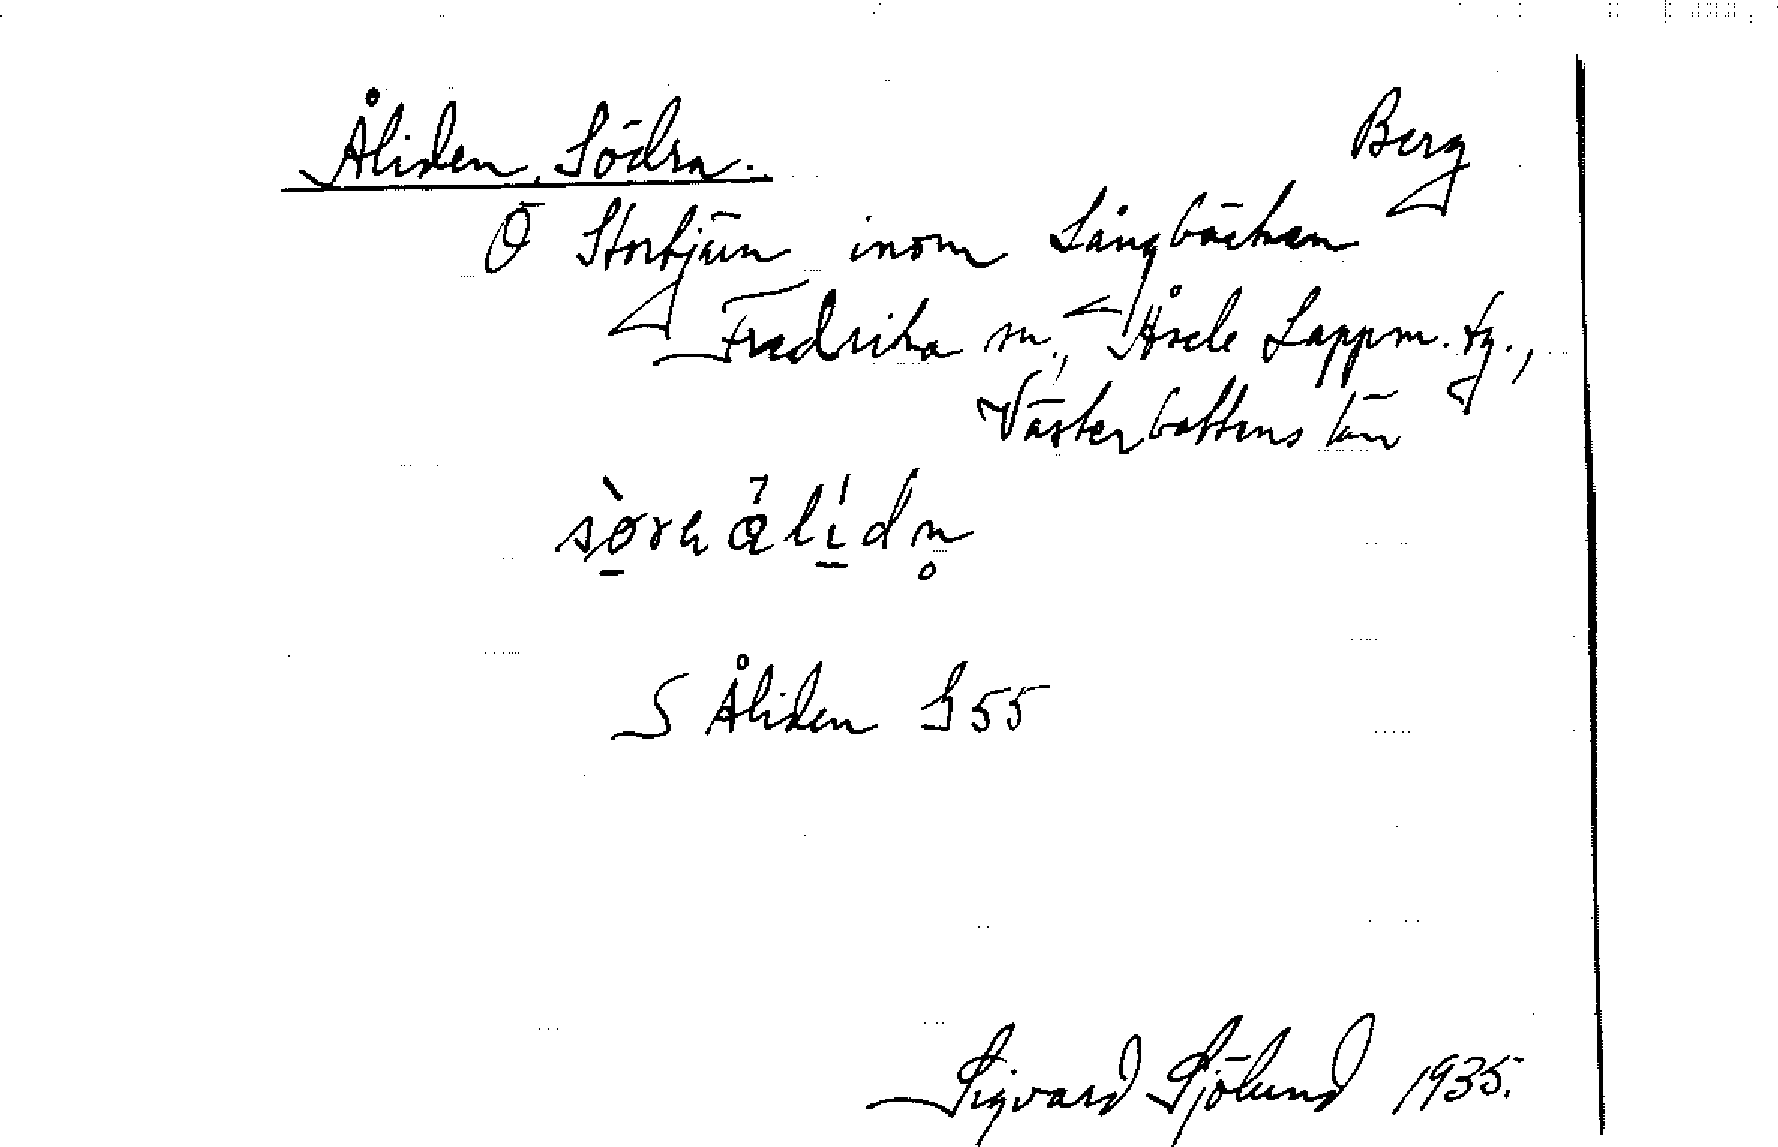 Åliden, Södra.
Berg
Ö Stortjärn inom Långbäcken
Fredrika sn., Åsele Lappm. tg.,
Västerbottens län
S Åliden G 55
Sigvard Sjölund 1935.